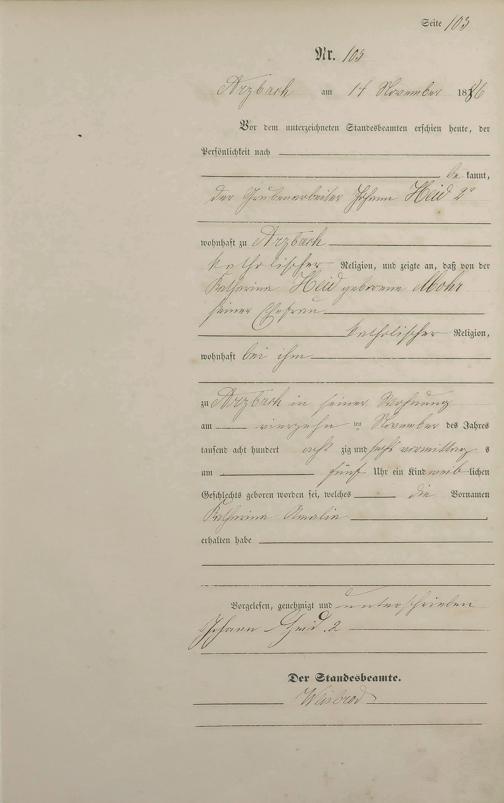 Seite 103
Nr. 103
Arzbach am 14 November 1886
Vor dem unterzeichneten Standesbeamten erschien heute, der
Persönlichkeit nach
be kannt,
der Grubenarbeiter Johann Heid 2r
wohnhaft zu Arzbach
katholischer Religion, und zeigte an, daß von der
Katharina Heid geborene Mohr
seiner Ehefrau
katholischer Religion,
wohnhaft bei ihm
zu Arzbach in seiner Wohnung
am vierzehn ten November des Jahres
tausend acht hundert acht zig und sechs vormittag s
um fünf Uhr ein Kind weib lichen
Geschlechts geboren worden sei, welches die Vornamen
Katharina Amalia
erhalten habe
Vorgelesen, genehmigt und unterschrieben
Johann Heid 2
Der Standesbeamte.
Weisbrod